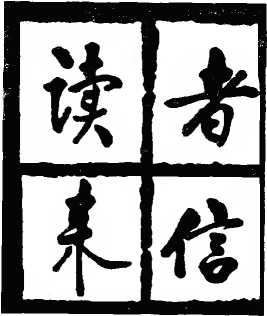 读者
来信